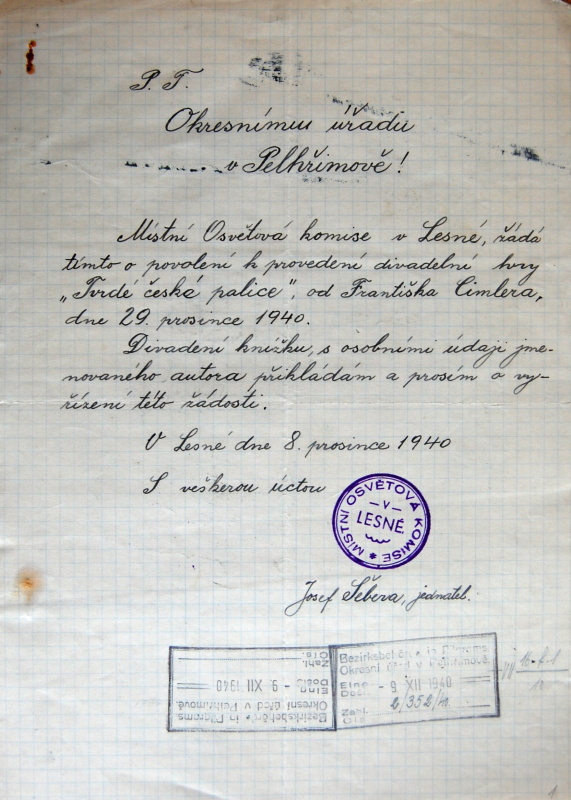 P. T.
Okresnímu úřadu
v Pelhřimově!
Místní Osvětová komise v Lesné, žádá
tímto o povolení k provedení divadelní hry
„Tvrdé česká palice", od Františka Cimlera,
dne 29. prosince 1940.
Divadení knížku, s osobními údaji jme-
novaného autora přikládám a prosím o vy-
řízení této žádosti.
V Lesné dne 8. prosince 1940
S veškerou úctou
MÍSTNÍ OSVĚTOVÁ KOMISE
– V –
LESNÉ.
Josef Šebera, jednatel.
Bezirksbehörde in Pilgrams
Okresní úřad v Pelhřimově.
Eing.
Došlo - 9. XII 1940
Zahl.
Čís. 2/352/40
Bezirksbehörde in Pilgrams
Okresní úřad v Pelhřimově.
Eing.
Došlo - 9. XII 1940
Zahl.
Čís.
1